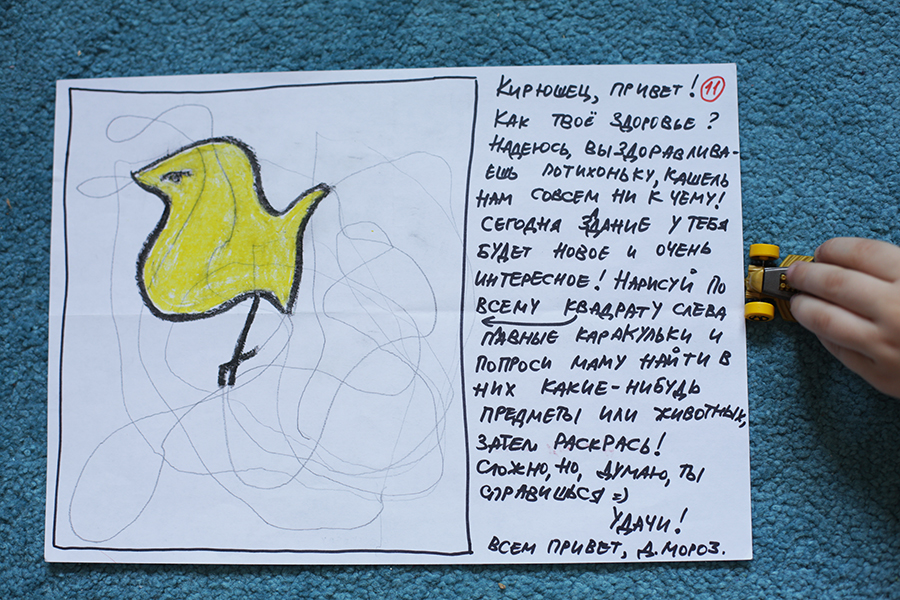 Кирюшец, привет! 11
Как твоё здоровье?
Надеюсь, выздоравлива-
ешь потихоньку, кашель
нам совсем ни к чему!
Сегодня здание у тебя
будет новое и очень
интересное! Нарисуй по
всему квадрату слева
плавные каракульки и
попроси маму найти в
них какие-нибудь
предметы или животных,
затем раскрась!
Сложно, но, думаю, ты
справишься =)
Удачи!
Всем привет, Д. Мороз.